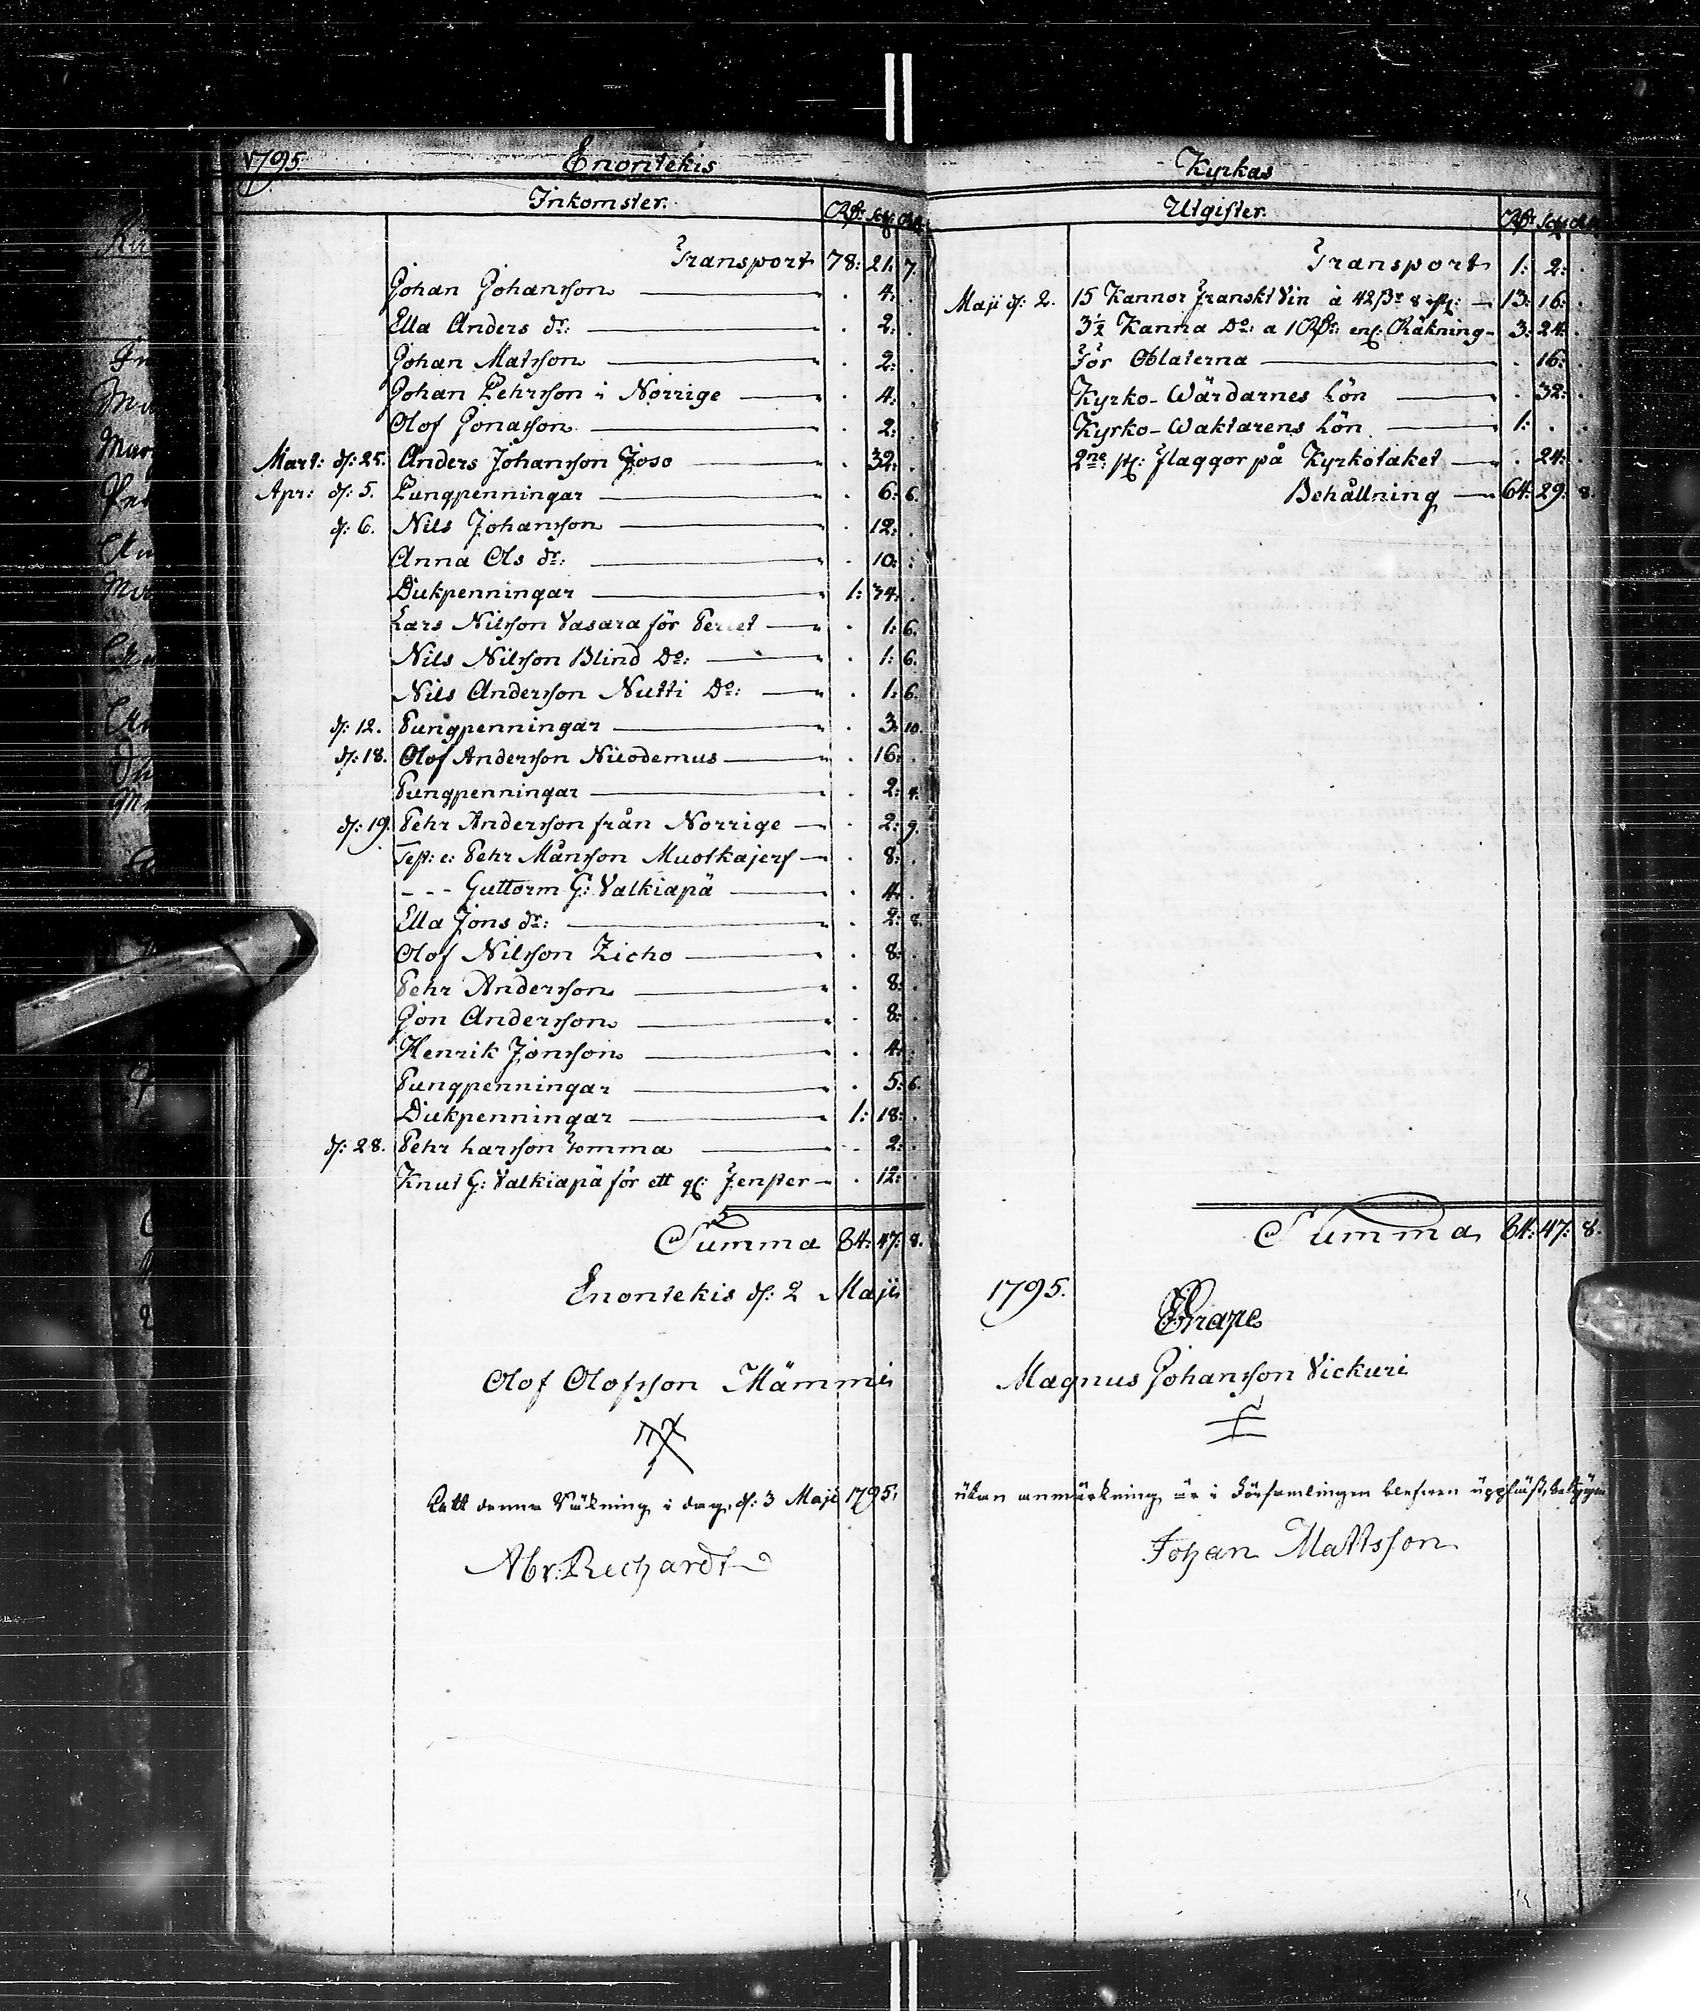 1795.
Enontekis
Inkomster. Rd: sk: rst:
Transport 78: 21: 7.
Johan Johansson . 4: .
Ella Anders dr: . 2: .
Johan Matsson . 2: .
Johan Pehrsson i Norrige . 4: .
Olof Jonasson . 2: .
Mart: d: 25. Anders Johansson Joso . 32: .
Apr: d: 5. Pungpenningar . 6: 6.
d: 6. Nils Johansson . 12: .
Anna Ols dr: . 10: .
Dukpenningar 1: 34: .
Lars Nilsson Vasara för . 1: 6.
Nils Nilsson Blind Do: . 1: 6.
Nils Andersson Nutti Do: . 1: 6.
d: 12. Pungpenningar . 3: 10.
d: 18. Olof Andersson Nicodemus . 16: .
Pungpenningar . 2: 4.
d: 19. Pehr Andersson från Norrige . 2: 9.
Test: e: Pehr Månsson Muotkajerf . 8: .
- - - Guttorm G: Valkiapä . 4: .
Ella Jons dr: . 2: 8.
Olof Nilsson Zicho . 8: .
Pehr Andersson . 8: .
Jon Andersson . 8: .
Henrik Jonsson . 4: .
Pungpenningar . 5: 6.
Dukpenningar 1: 18: .
d: 28. Pehr Larsson Tomma . 2: .
Knut G: Valkiapä för ett gl: Fenster . 12: .
Summa 84: 47: 8.
Enontekis d: 2 Maji
Olof Olofsson Mämmi
Att denna Räkning i dag, d: 3 Maji 1795,
Abr: Rechardt
Kyrkas
Utgifter. Rd: sk: rst:
Transport 1: 2: .
Maji d: 2. 15 Kannor Franskt Vin à 42 sk: 8 rst: 13: 16: .
3½ Kanna Do: a 1 Rd: enl: Räkning 3: 24: .
För Oblaterna . 16: .
Kyrko-Wärdarnes Lön . 32: .
Kyrko-Waktarens Lön 1: . .
2ne: st: Flaggor på Kyrkotaket . 24: .
Behållning 64: 29: 8.
Summa 84: 47: 8.
1795.
Magnus Johansson Vickuri
utan anmärkning är i Församlingen blefwen uppläst, betygar
Johan Mattsson